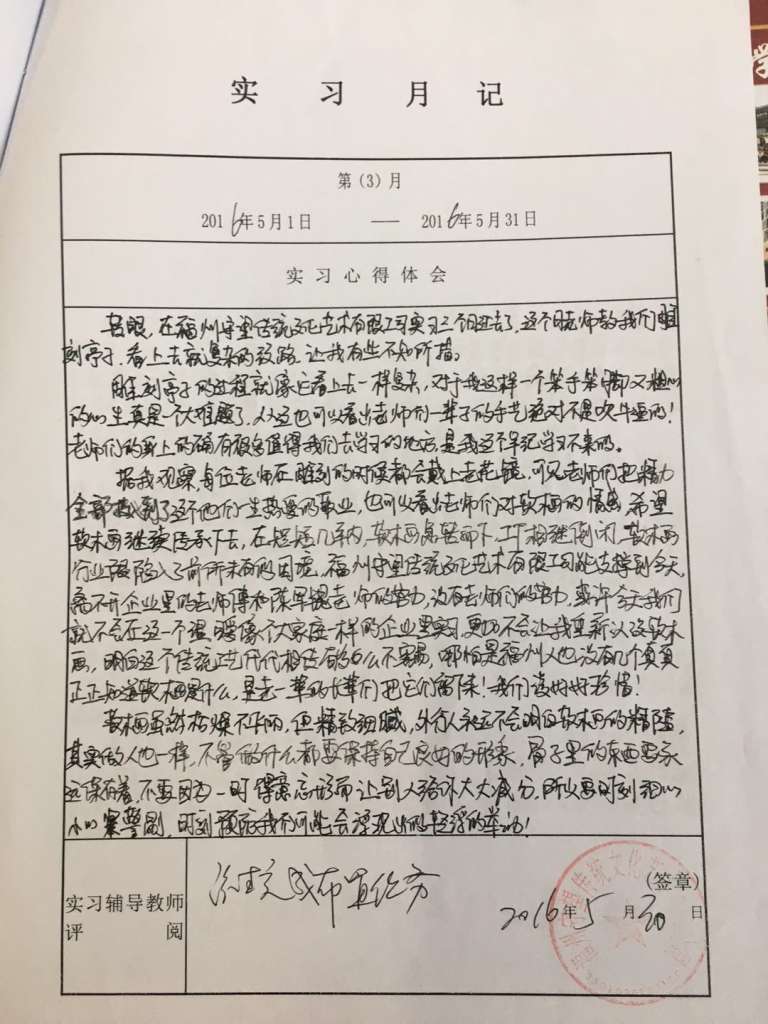 实 习 月 记
第（3）月
2016年5月1日 —— 2016年5月31日
实 习 心 得 体 会
眨眼，在福州守望传统文化艺术有限公司实习三个月过去了，这个月老师教我们雕
刻亭子，看上去就复杂的纹路，让我有些不知所措。
雕刻亭子的过程就像它看上去一样复杂，对于我这样一个笨手笨脚又粗心
的心生真是个大难题了，从这也可以看出老师们一辈子的手艺绝对不是吹牛逼的！
老师们的身上的确有很多值得我们去学习的地方，是我这个年纪学习不来的。
据我观察，每位老师在雕刻的时候都会戴上老花镜，可见老师们把精力
全部投入到了这个他们一生热爱的事业，也可以看出老师们对软木画的情感，希望
软木画继续传承下去，在短短几年内，软木画急转而下，工厂相继倒闭，软木画
行业跟陷入了前所未有的困境，福州守望传统文化艺术有限公司能支撑到今天，
离不开企业里的老师傅和陈军提老师的努力，没有老师们的努力，或许今天我们
就不会在这一个温暖像个大家庭一样的企业里实习，更加不会让我重新认识软木
画，明白这个传统工艺代代相传有多么不容易，哪怕是福州人也没有几个真真
正正知道软木画是什么，是老一辈的长辈们把它们留下来！我们当好好珍惜！
软木画虽然枯燥不华丽，但精致细腻，外行人永远不会明白软木画的精髓，
其实做人也一样，不管做什么都要保持自己良好的形象，骨子里的东西要永
远保存着，不要因为一时得意忘形而让别人给你大大减分，所以要时刻把心
时刻预防我们可能会浮现出的轻浮的举动！
实习辅导教师
评 阅
（签章）
2016年5月30日